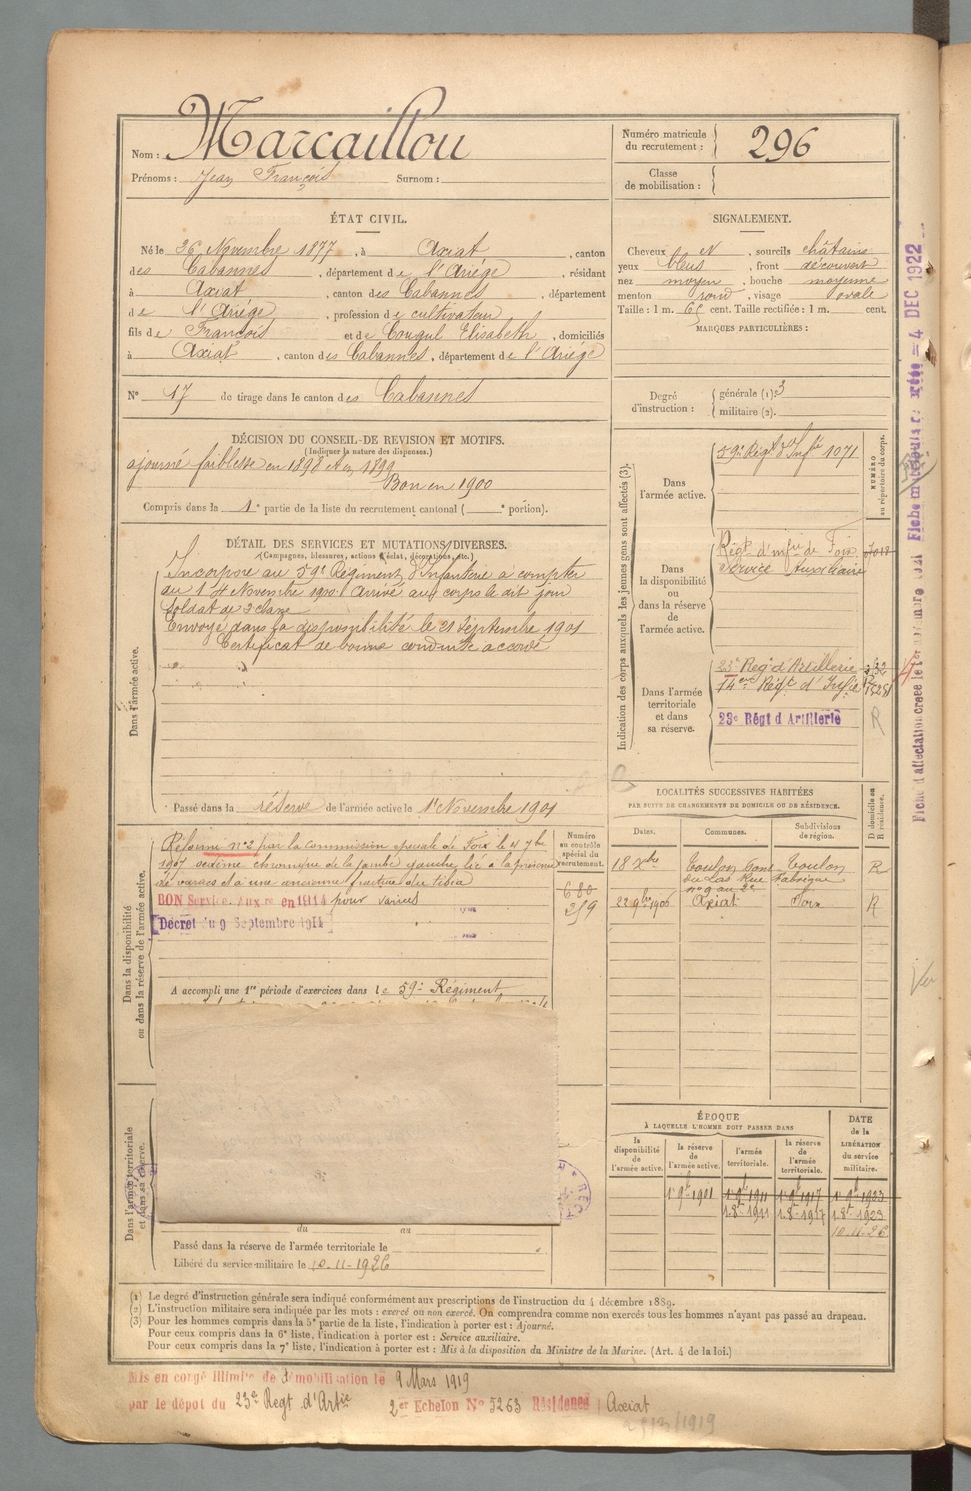 Nom : Marcaillou
Prénoms : Jean François Surnom :
Numéro matricule du recrutement : 296
Classe de mobilisation :
ÉTAT CIVIL.
Né le 26 Novembre 1877, à Axiat, canton
des Cabannes, département de l'Ariége, résidant
à Axiat, canton des Cabannes, département
de l'Ariége, profession de cultivateur
fils de François et de Cougul Elisabeth, domiciliés
à Axiat, canton des Cabannes, département de l'Ariége
N° 17 de tirage dans le canton des Cabannes
SIGNALEMENT.
Cheveux et, sourcils châtains
yeux bleus, front découvert
nez moyen, bouche moyenne
menton rond, visage ovale
Taille : 1 m. 65 cent. Taille rectifiée : 1 m. cent.
MARQUES PARTICULIÈRES :
Degré d'instruction : générale (1) 3
militaire (2).
DÉCISION DU CONSEIL DE REVISION ET MOTIFS.
(Indiquer la nature des dispenses.)
ajourné faiblesse en 1898 et en 1899
Bon en 1900
Compris dans la 1e partie de la liste du recrutement cantonal ( e portion).
DÉTAIL DES SERVICES ET MUTATIONS DIVERSES.
(Campagnes, blessures, actions d'éclat, décorations, etc.)
Dans l'armée active.
Incorporé au 59e Régiment d'Infanterie à compter
du 14 Novembre 1900. Arrivé au corps le dit jour
Soldat de 2e classe
Envoyé dans la disponibilité le 21 Septembre 1901
Certificat de bonne conduite accordé
Passé dans la réserve de l'armée active le 1er Novembre 1901
Indication des corps auxquels les jeunes gens sont affectés (3).
NUMÉRO au répertoire du corps.
Dans l'armée active.
59e Régt d'Infie 1071
Dans la disponibilité ou dans la réserve de l'armée active.
Régt d'Infie de Foix
Service Auxiliaire
Dans l'armée territoriale et dans sa réserve.
23e Régt d'Artillerie
14eme Régt d'Infie
23e Régt d'Artillerie
R
Dans la disponibilité ou dans la réserve de l'armée active.
Réformé n°2 par la Commission spéciale de Foix le 4 7bre
1907 œdème chronique de la jambe gauche lié à la présence
de varices et à une ancienne fracture du tibia
BON Service Auxre en 1914 pour varices
Décret du 9 Septembre 1914
A accompli une 1re période d'exercices dans le 59e Régiment
Numéro au contrôle spécial du recrutement.
680
259
LOCALITÉS SUCCESSIVES HABITÉES
PAR SUITE DE CHANGEMENTS DE DOMICILE OU DE RÉSIDENCE.
Dates. Communes. Subdivisions de région. D domicile ou R résidence.
Toulon Toulon R
22 9bre 1906 Axiat Foix R
Dans l'armée territoriale et dans sa réserve.
du au
Passé dans la réserve de l'armée territoriale le
Libéré du service militaire le 10-11-1926
ÉPOQUE
À LAQUELLE L'HOMME DOIT PASSER DANS
la disponibilité de l'armée active.
la réserve de l'armée active.
l'armée territoriale.
la réserve de l'armée territoriale.
DATE de la LIBÉRATION du service militaire.
1er 9bre 1901 1er 9bre 1911 1er 9bre 1917 1er 9bre 1923
10-11-26
(1) Le degré d'instruction générale sera indiqué conformément aux prescriptions de l'instruction du 4 décembre 1889.
(2) L'instruction militaire sera indiquée par les mots : exercé ou non exercé. On comprendra comme non exercés tous les hommes n'ayant pas passé au drapeau.
(3) Pour les hommes compris dans la 5e partie de la liste, l'indication à porter est : Ajourné.
Pour ceux compris dans la 6e liste, l'indication à porter est : Service auxiliaire.
Pour ceux compris dans la 7e liste, l'indication à porter est : Mis à la disposition du Ministre de la Marine. (Art. 4 de la loi.)
Mis en congé illimité de démobilisation le 9 Mars 1919
par le dépot du 23e Régt d'Artie 2er Echelon N° 5263 Résidence Axiat
4 DEC 1922